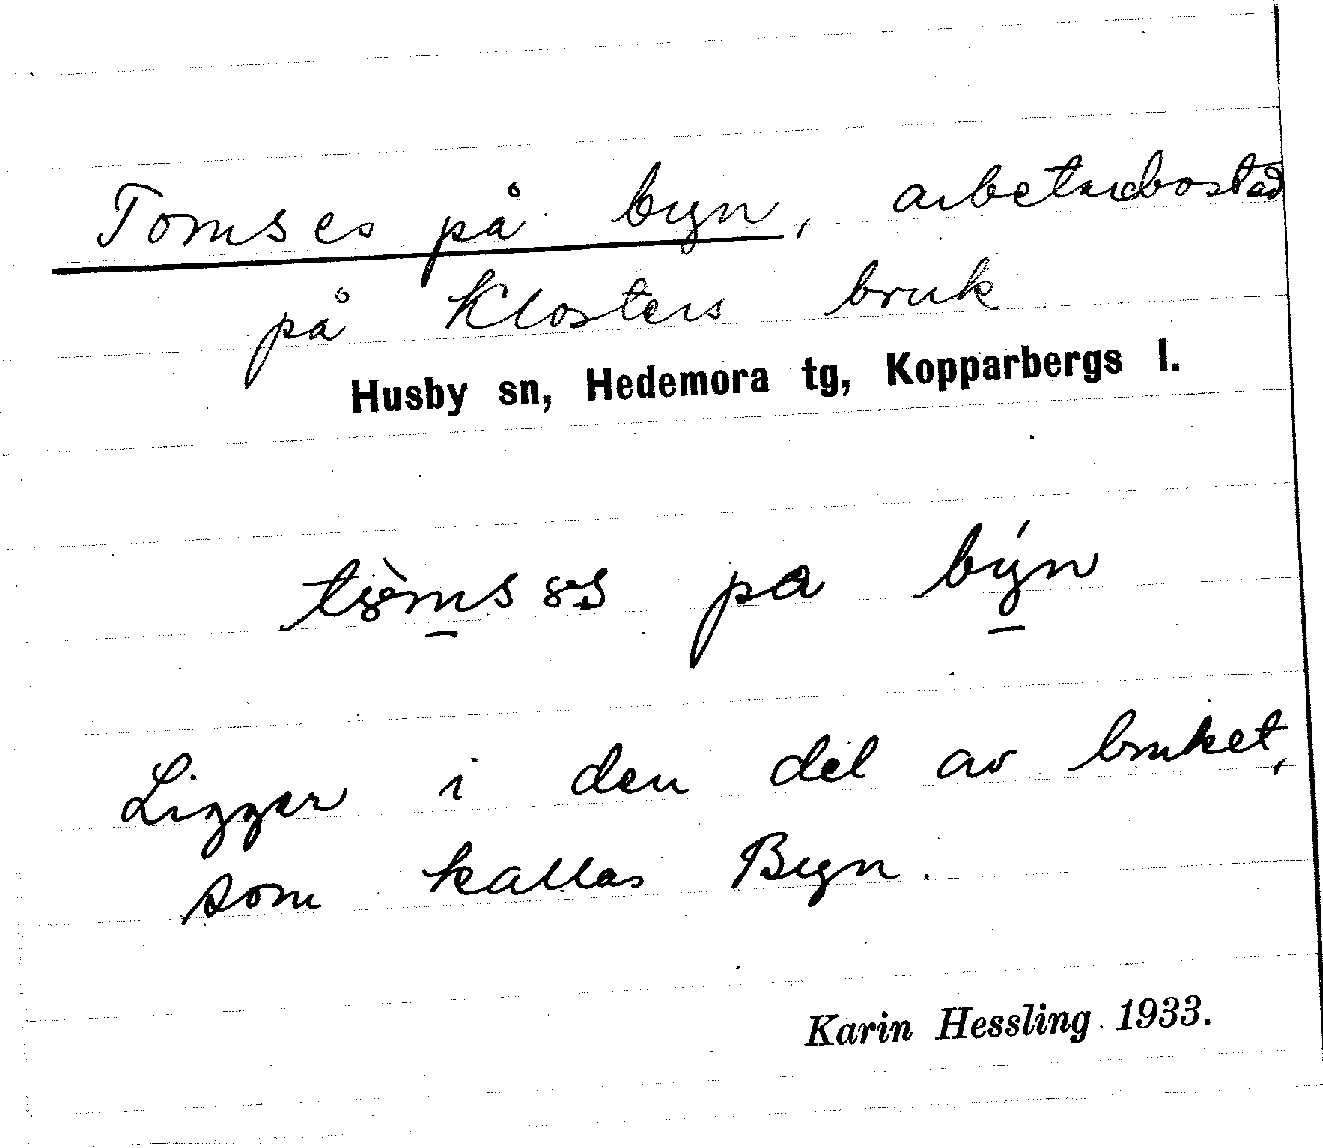 Tomses på byn, arbetarebostad
på Klosters bruk
Husby sn, Hedemora tg, Kopparbergs l.
pa býn
Ligger i den del av bruket,
som kallas Byn.
Karin Hessling 1933.